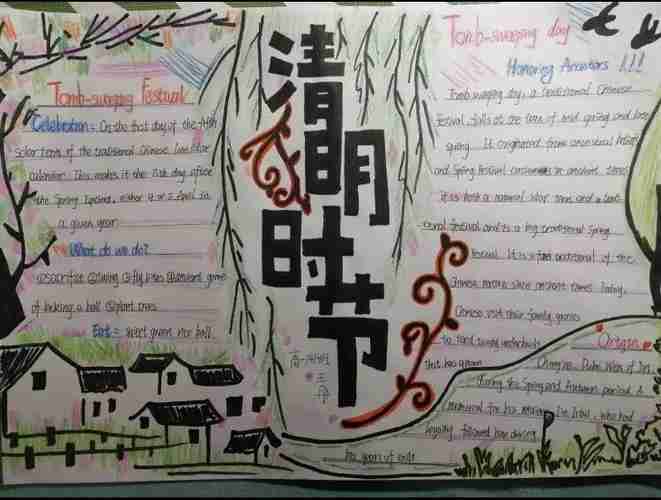 Tomb-sweeping Festival
Celebration: On the first day of the
solar term of the traditional Chinese
calendar. This makes it the day after
the Spring Equinox, either 4 or 5 April in
a given year
What do we do?
①sacrifice ②swing ③fly kites
of kicking a ball ⑤plant trees
Eat: sweet green rice ball
清明时节
Tomb-sweeping day
Honoring Ancestors !!!
Tomb sweeping day, a traditional Chinese
festival, falls at the turn of mid spring and late
spring. It originated from ancestral beliefs
and Spring Festival in ancient times
it is both a natural solar term and a
festival and is a big traditional Spring
festival. It is a traditional of the
Chinese nation since ancient times. Today,
Chinese visit their family graves
to tend
that has grown
Origin
Duke Wen of Jin
during the Spring and Autumn period. A
for his Jie Zitui, who had
loyally followed him during
his years of exile